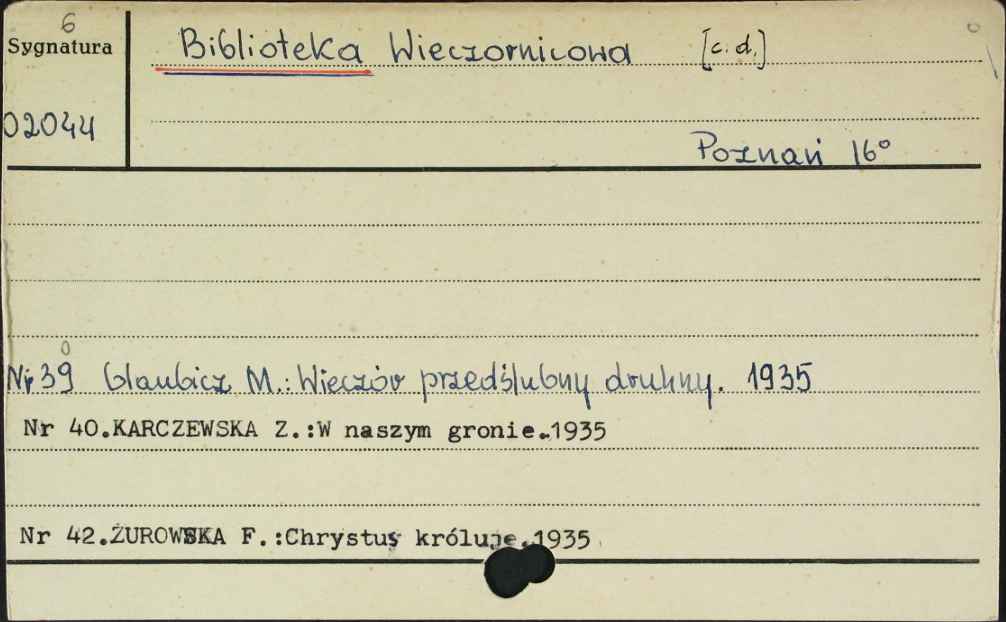 6
Sygnatura
Biblioteka Wieczornicowa [c.d.]
02044
Poznań 16°
Nr 39 Glaubicz M.: Wieczór przedślubny druhny. 1935
Nr 40.KARCZEWSKA Z.:W naszym gronie.1935
Nr 42.ŻUROWSKA F.:Chrystus króluje.1935